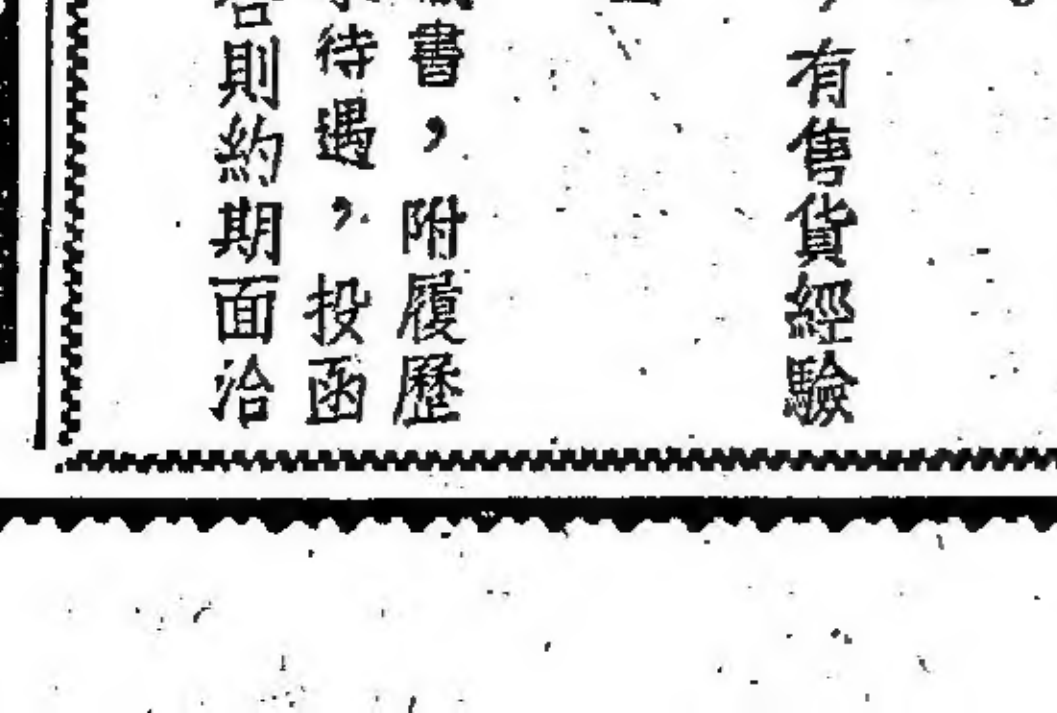 ，有售貨經驗
書，附履歷
待遇，投函
則約期面洽